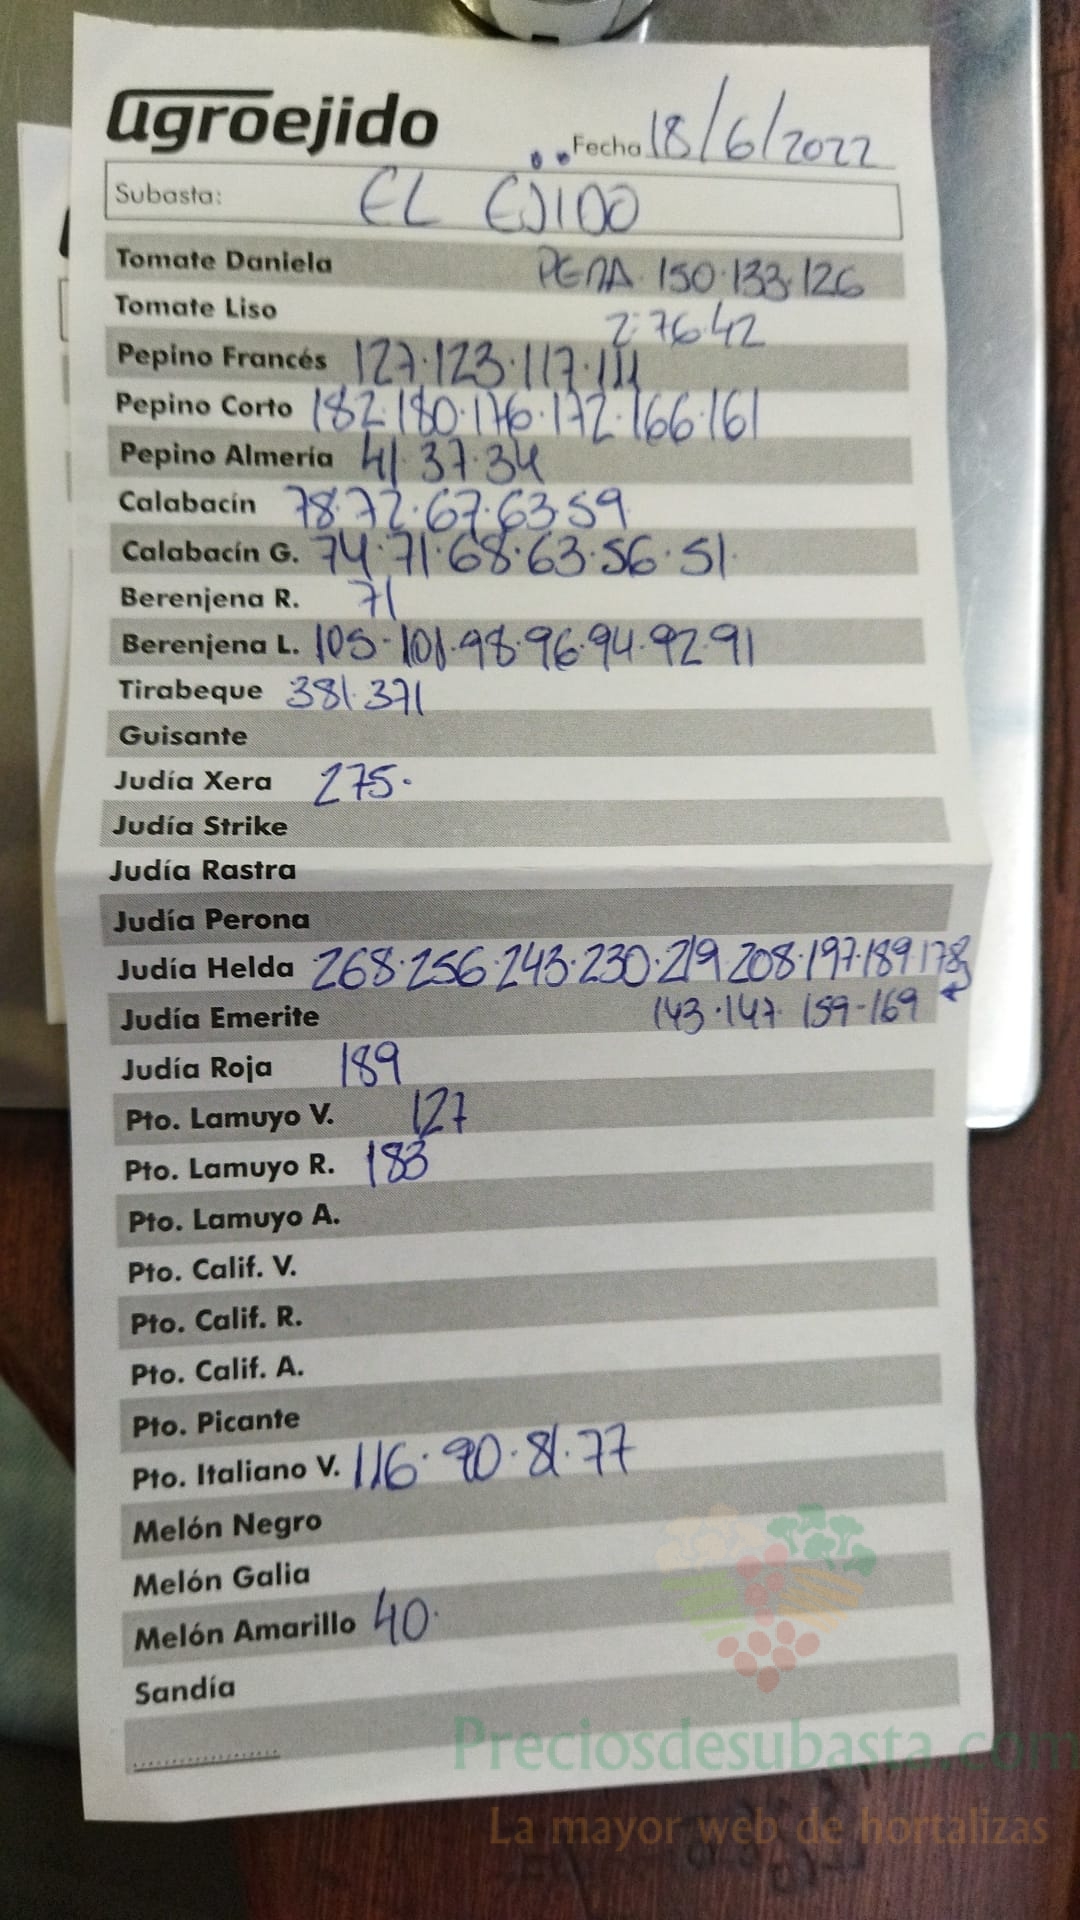 agroejido
Fecha 18/6/2022
Subasta: EL EJIDO
Tomate Daniela PERA 150·133·126
Tomate Liso 2ª 76·42
Pepino Francés 127·123·117·111
Pepino Corto 182·180·176·172·166·161
Pepino Almería 41·37·34
Calabacín 78·72·67·63·59
Calabacín G. 74·71·68·63·56·51·
Berenjena R. 71
Berenjena L. 105-101·98·96·94·92·91
Tirabeque 381·371
Guisante
Judía Xera 275·
Judía Strike
Judía Rastra
Judía Perona
Judía Helda 268·256·243·230·219·208·197·189·178
Judía Emerite 143·147· 159-169
Judía Roja 189
Pto. Lamuyo V. 127
Pto. Lamuyo R. 183
Pto. Lamuyo A.
Pto. Calif. V.
Pto. Calif. R.
Pto. Calif. A.
Pto. Picante
Pto. Italiano V. 116·90·81·77
Melón Negro
Melón Galia
Melón Amarillo 40·
Sandía
Preciosdesubasta.com
La mayor web de hortalizas